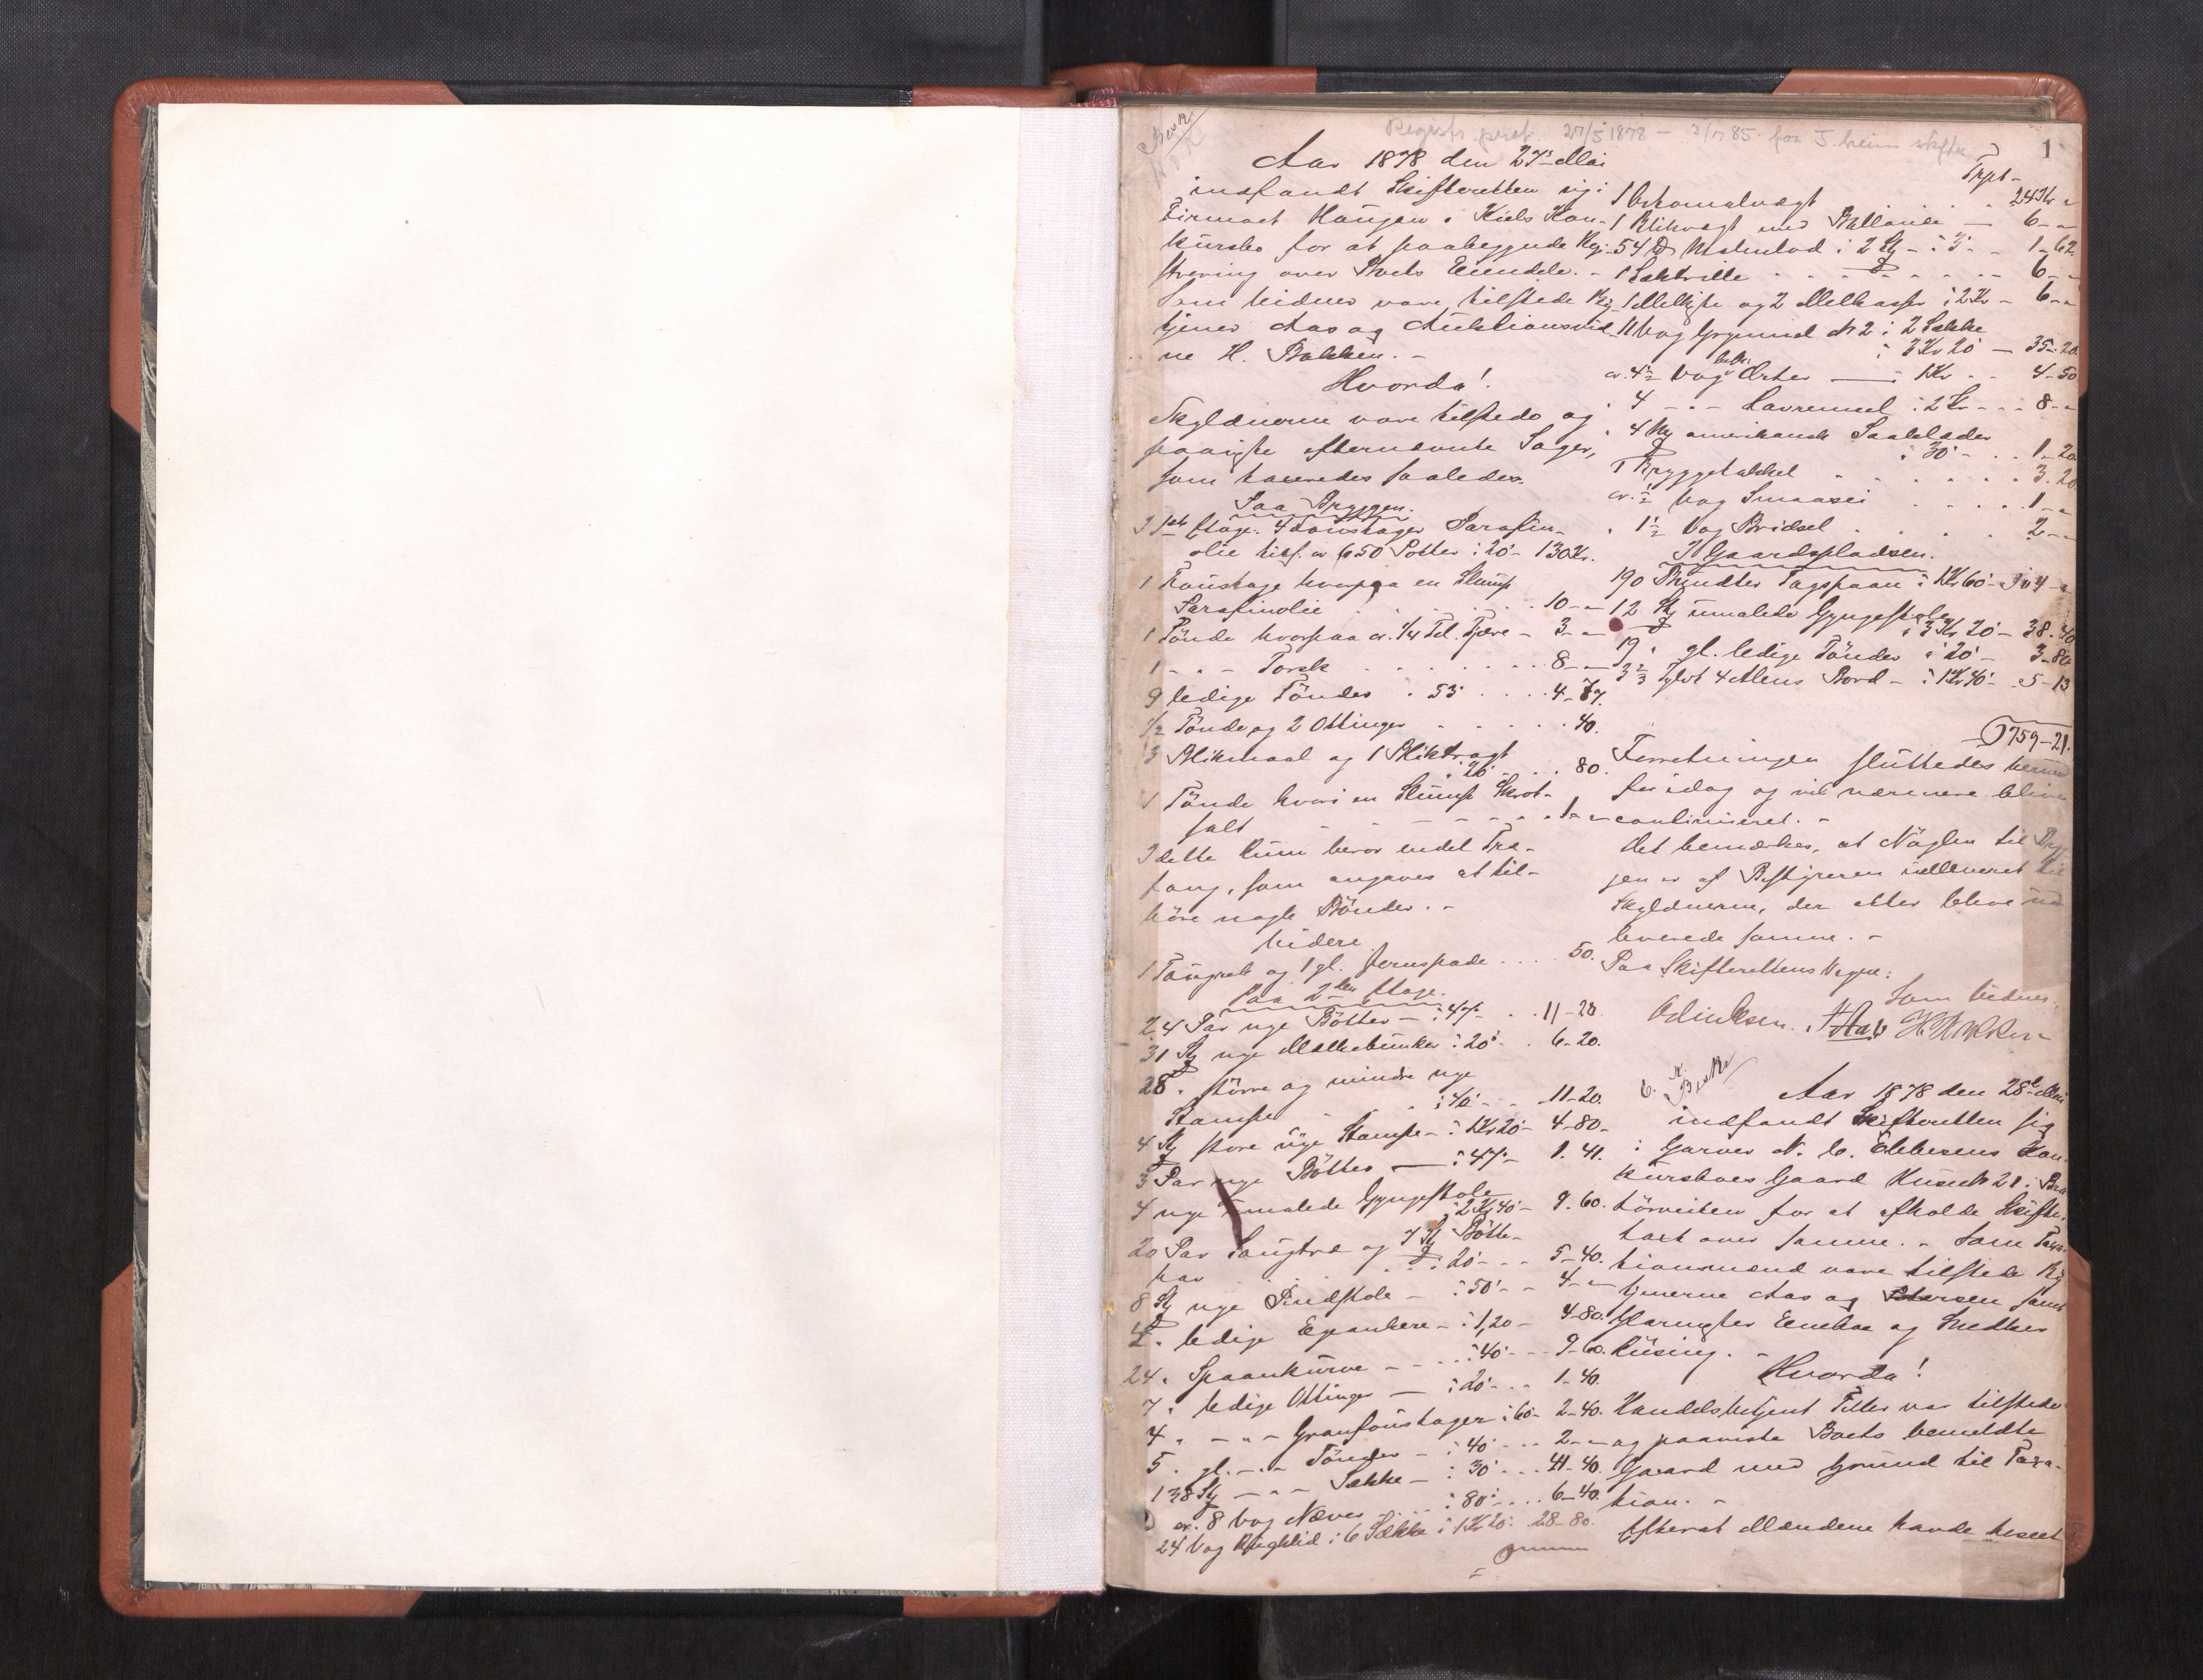 Registr. prot. 27/5 1878 - 3/7 85 for T.heim skifte
1
Besk.
Aar 1878 den 27' Mai
indfandt Skifteretten sig i
Firmaet Haugen & Kiels Kon-
kursbo for at paabegynde Regi-
strering over Boets Eiendele. -
Som Vidner vare tilstede Rg.
tjener Aas og Auktionsvid-
ne H. Bakken. -
Hvorda!
Skyldnerne vare tilstede og
paaviste efternævnte Sager,
som taxeredes saaledes.
Paa Bryggen.
I 1ste Etage. 4 Foustager Parafin-
olie tils. ca 650 Potter : 20' - 130Kr.
1 Foustage hvorpaa en Slump
Parafinolie 10 - "
1 Tønde hvorpaa ca. 1/4 Td. Tjære - 3 - "
1 - " - Torsk 8 - "
9 ledige Tønder : 53 4-77.
1/2 Tønde og 2 Ottinger 40.
3 Blikmaal og 1 Bliktragt
: 20' 80.
1 Tønde hvori en Slump Skrot-
salt 1 - "
I dette Rum beror endel Træ-
fang, som angaves at til-
høre nogle Bønder. -
Videre
1 Taugreb og 1 gl. Jernspade 50.
Paa 2den Etage.
24 Par nye Bøtter - : 47' 11-28
31 St nye Melkebunker : 20' 6-20.
28 " større og mindre nye
Stampe : 40' 11-20.
4 St store nye Stampe - : 1Kr20' - 4-80 -
3 Par nye Bøtter - : 47' - 1.41.
4 nye umalede Gyngestole
: 2Kr40' - 9.60.
20 Par Langtræ og 7 St Bøtte-
: 20' 5-40.
8 St nye Pindstole - : 50' - 4 - "
4 " ledige Eqankere - : 1,20 - 4-80.
24 " Spaankurve : 40' 9-60.
7 " ledige Ottinger - : 20' 1-40.
4 " - " - Granfoustager : 60' - 2-40.
5 " gl. - " - Tønder - : 40' 2 - "
138 St - " - Sække - : 30' 41-40.
ca. 8 Vog Næver : 80' 6-40.
24 Vog Rugklid i 6 Sække : 1Kr20' 28-80.
Trpt -
1 Decimalvægt 24Kr "
1 Blikvægt med 6 - "
54 ℔ Metallod i 2 St - : 3' 1-62
1 Sæktrille 6 - "
1 Melkiste og 2 Melkasser : 2Kr - 6 - "
11 Vog Grynmel No 2 i 2 Sække
: 3Kr20' - 35-20.
ca. 4 1/2 Vog besk. Erter - : 1Kr 4-50
" 4 - " - Havremel : 2Kr - 8 - "
" 4 St amerikansk Saalelæder
: 30' - 1-20
1 Bryggetakkel 3.20
ca. 1/2 Vog Smaasei 1 - "
" 1 1/2 Vog Bridsel 2 - "
I Gaardspladsen.
190 Bundter Tagspaan : 1Kr60' - 304 - "
12 St umalede Gyngestole
: 3Kr20' - 38.40
19 " gl. ledige Tønder : 20' - 3-80
3 2/3 Tylvt 4 Alens Bord - : 1Kr40' - 5-13
759-21.
Forretningen sluttedes herved
for idag og vil nærmere blive
continueret. -
Det bemærkes, at Nøglen til Bryg
gen er af Bestyreren udleveret til
Skyldnerne, der atter bleve ud
leverede samme. -
Paa Skifterettens Vegne:
Som Vidner.
Aas H. Bakken
Besk.
Aar 1878 den 28' Mai
indfandt Skifteretten sig
i Garver N. C. Ebbesens Kon-
kursboes Gaard Hus No 21 i Bra
tørveiten for at afholde Skifte-
taxt over samme. - Som Taxa-
tionsmænd vare tilstede Rg
tjenerne Aas og Petersen samt
Glarmester Enebae og Snedker
Rusing. -
Hvorda!
Handelsbetjent Tiller var tilstede
og paaviste Boets bemeldte
Gaard med Grund til Taxa-
tion. -
Efterat Mændene havde beseet